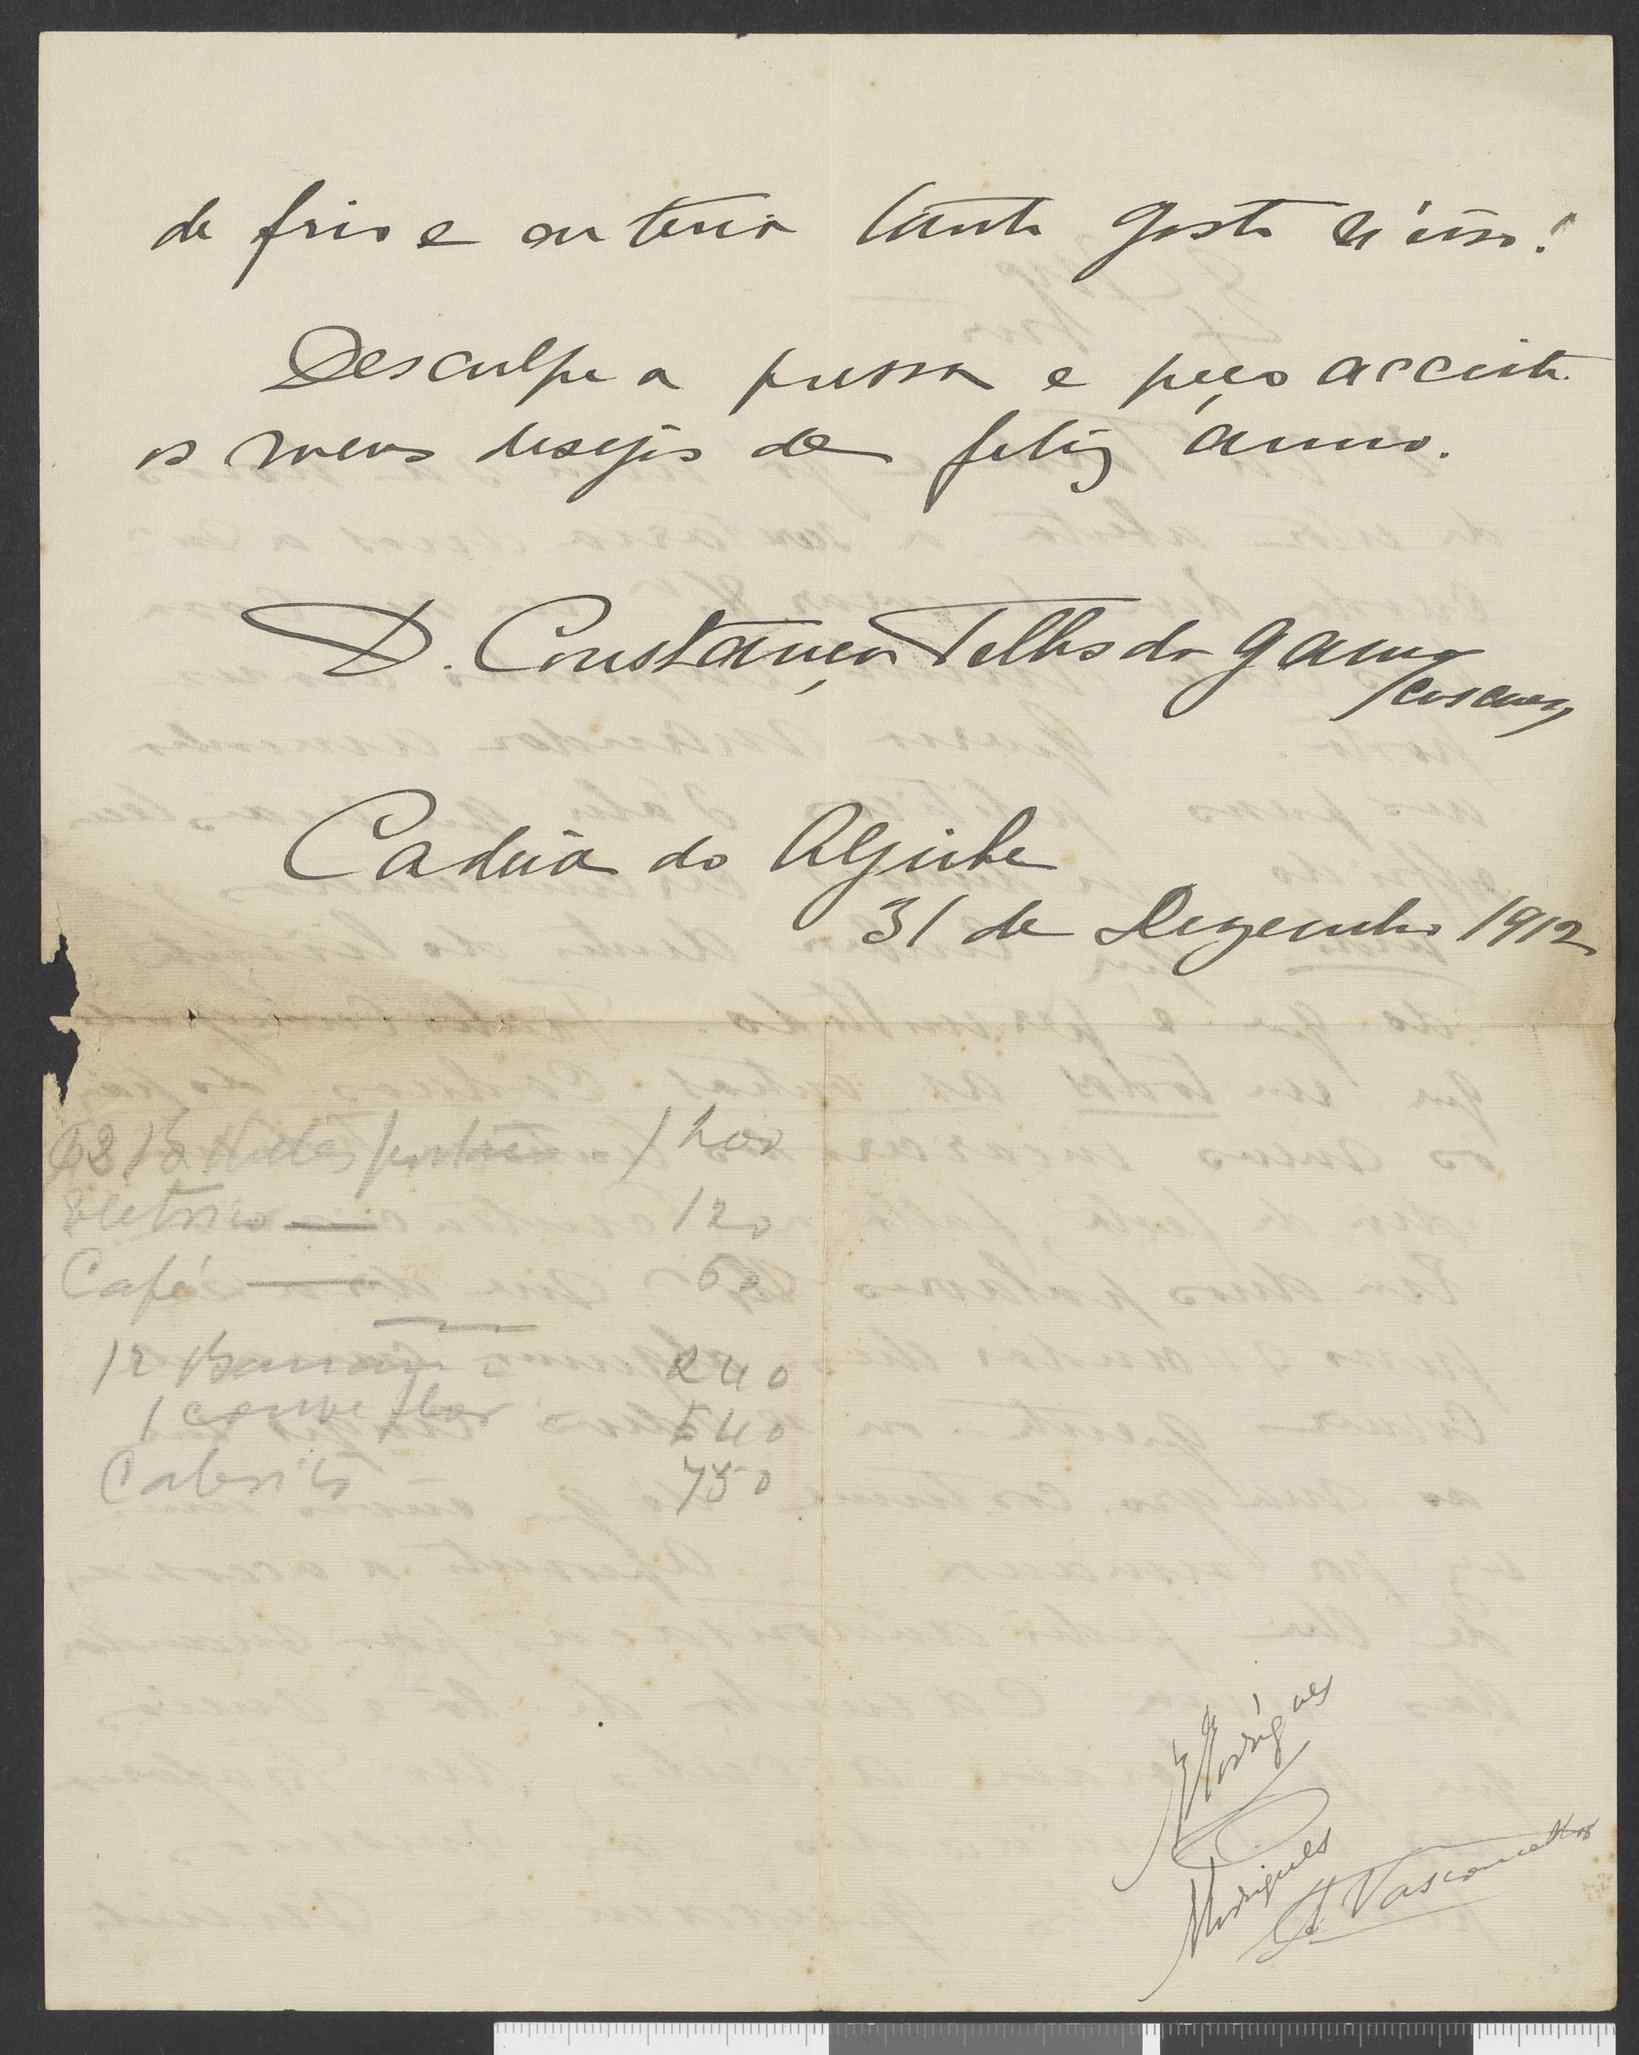 de frio e eu teria tanto gosto n'isso!
Desculpe a pressa e peço acceite
os meus desejos de feliz anno.
D. Constança Telles da Gama
Cascaes
Cadeia do Aljube
31 de Dezembro 1912
1200
Eletrico — 120
Café — 60
12 Bananas 240
1 couve flor 540
Cabrito — 750
Rodrigues
Rodrigues
A. Vasconcellos